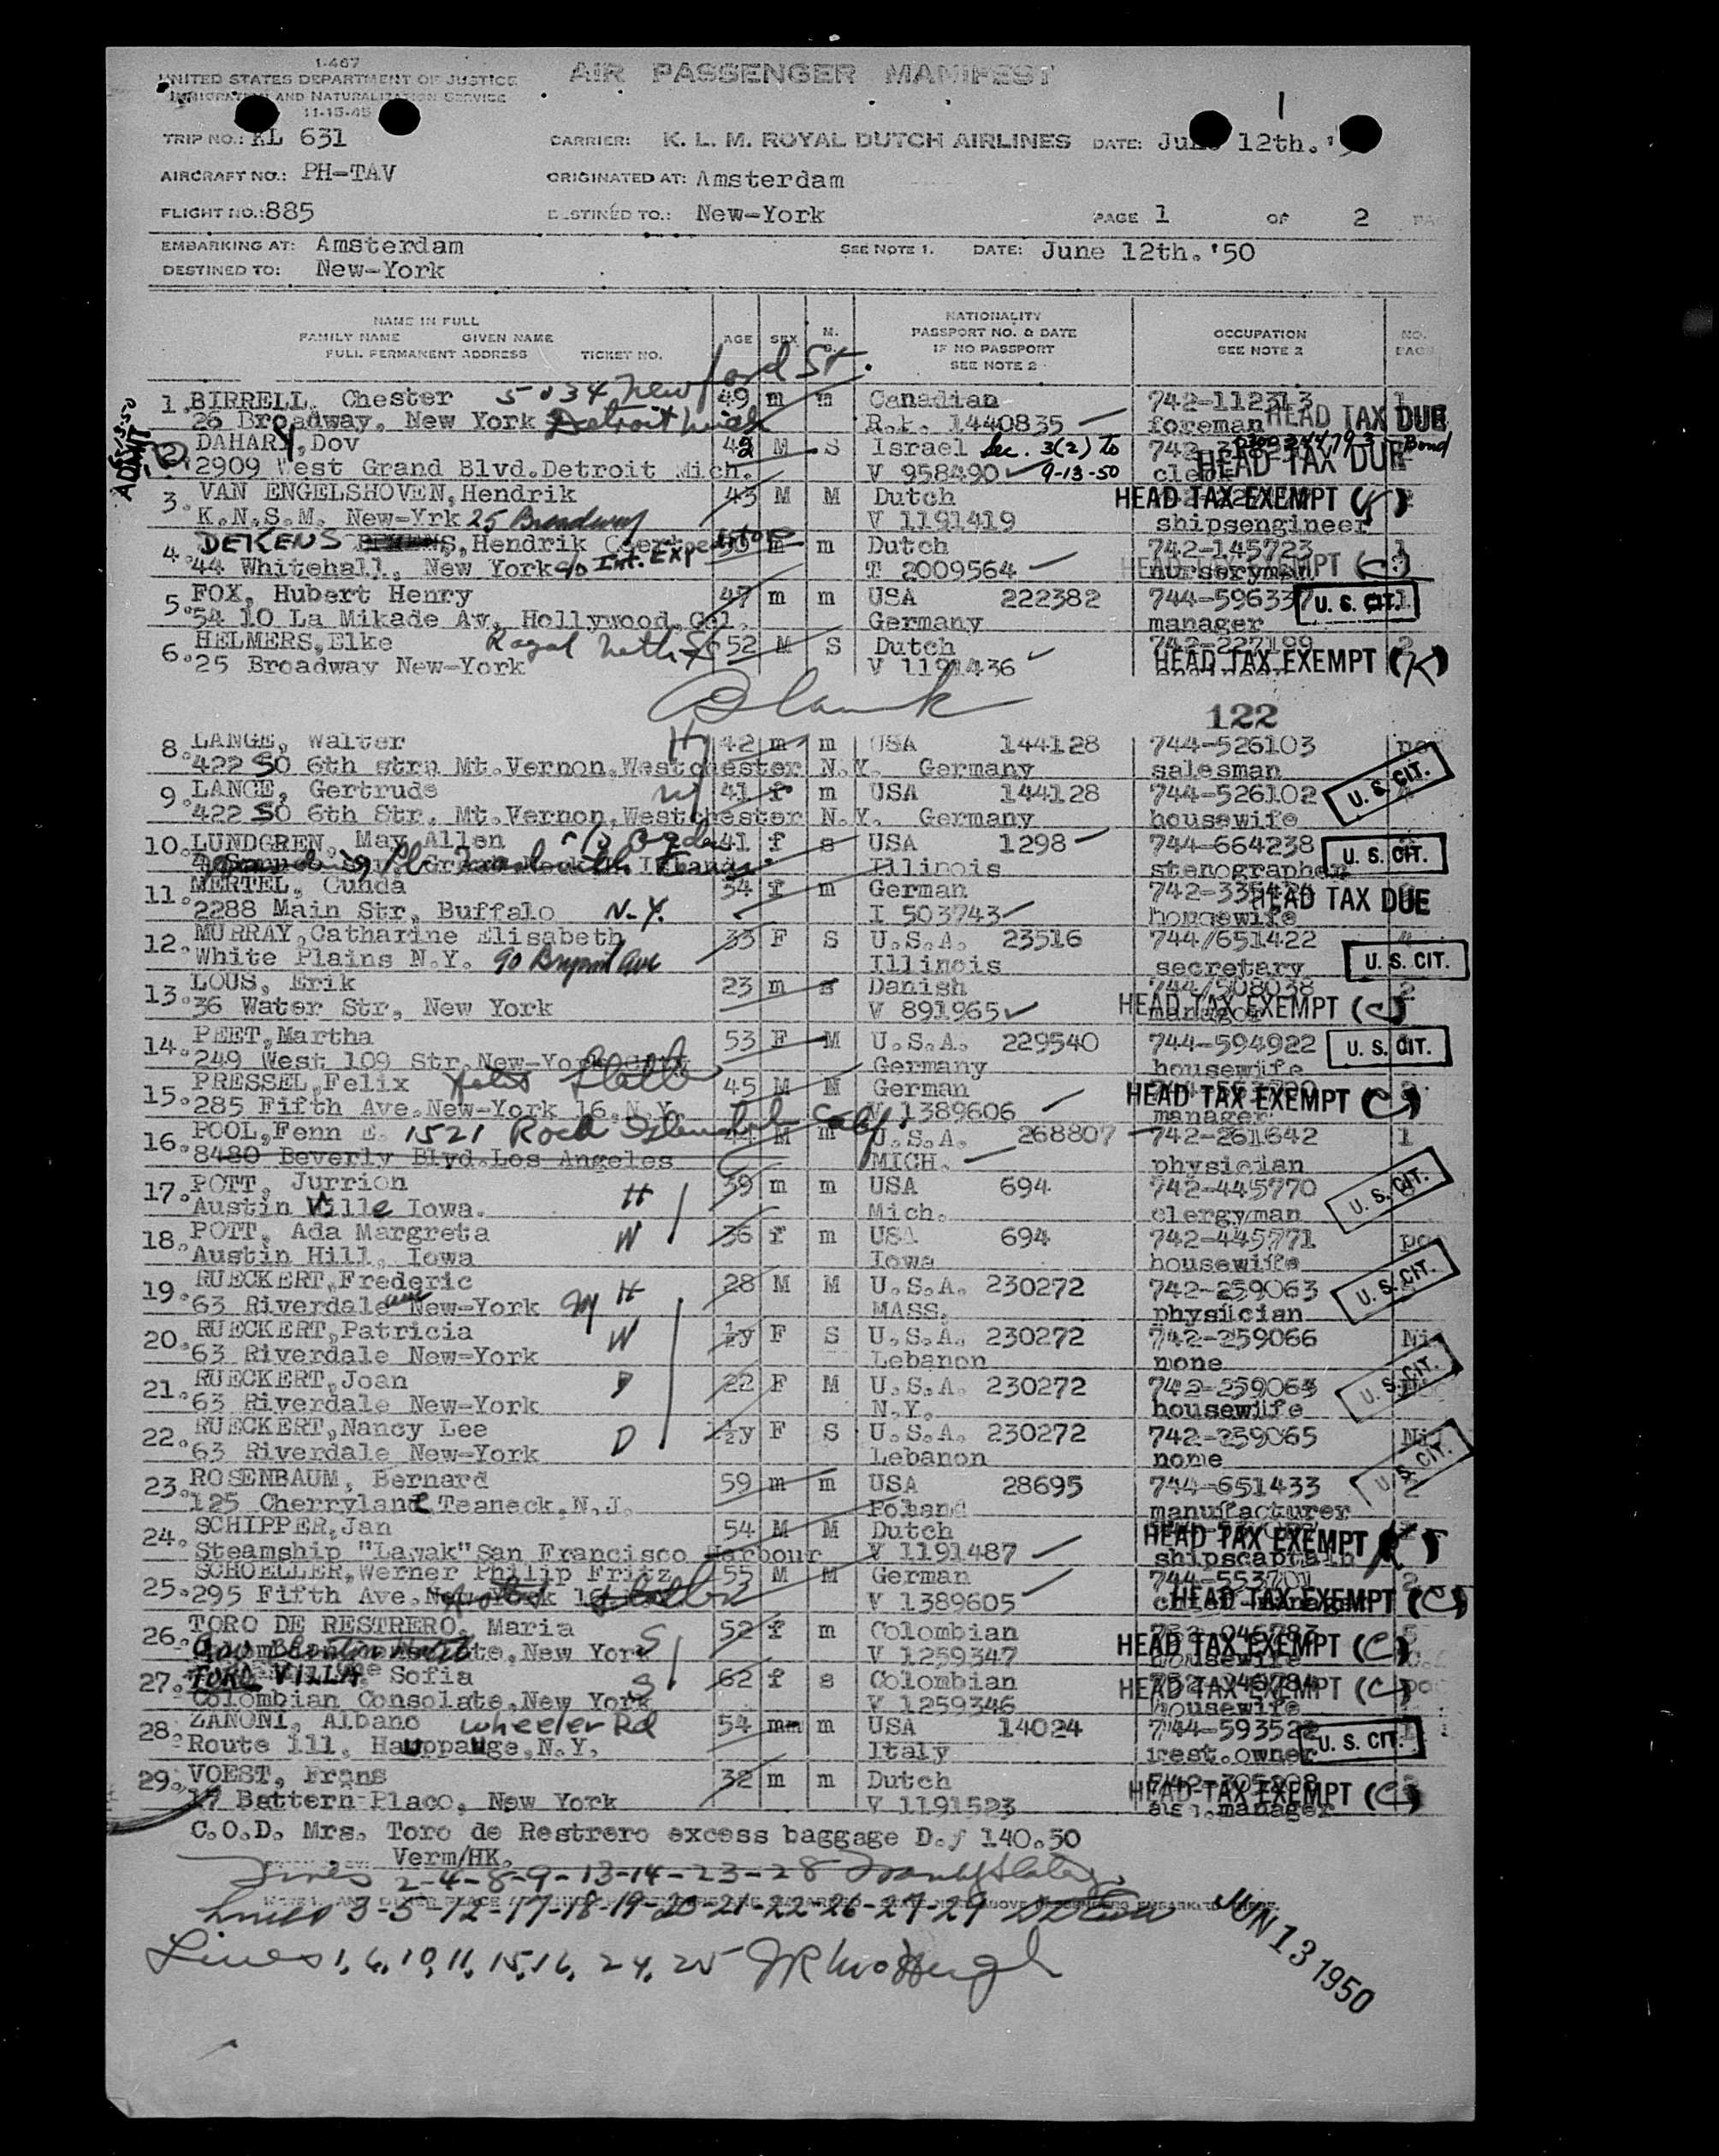 1-467
UNITED STATES DEPARTMENT OF JUSTICE
IMMIGRATION AND NATURALIZATION SERVICE
11-15-45
AIR PASSENGER MANIFEST
1
TRIP NO.: KL 631 CARRIER: K. L. M. ROYAL DUTCH AIRLINES DATE: June 12th.
AIRCRAFT NO.: PH-TAV ORIGINATED AT: Amsterdam
FLIGHT NO.: 885 DESTINED TO.: New-York PAGE 1 OF 2
EMBARKING AT: Amsterdam SEE NOTE 1. DATE: June 12th. '50
DESTINED TO: New-York
NAME IN FULL
FAMILY NAME GIVEN NAME
FULL PERMANENT ADDRESS TICKET NO.
AGE SEX M. S.
NATIONALITY
PASSPORT NO. & DATE
IF NO PASSPORT
SEE NOTE 2
OCCUPATION
SEE NOTE 2
NO. BAGS
1. BIRRELL, Chester 5034 Newford St. 49 m m Canadian 742-112313 1
26 Broadway, New York Detroit Mich R.k. 1440835 foreman HEAD TAX DUE
ADMIT
2. DAHARY, Dov 42 M S Israel Sec. 3(2) To Bond
2909 West Grand Blvd. Detroit Mich. V 958490 9-13-50 clerk HEAD TAX DUE
3. VAN ENGELSHOVEN, Hendrik 43 M M Dutch HEAD TAX EXEMPT
K.N.S.M. New-Yrk 25 Broadway V 1191419 shipsengineer
4. DEKENS, Hendrik m m Dutch 742-145723 1
44 Whitehall, New York c/o Int. Exp T 2009564 nurseryman HEAD TAX EXEMPT (C)
5. FOX, Hubert Henry 47 m m USA 222382 744-596337 U. S. CIT. 1
54 10 La Mikade Av, Hollywood, Cal. Germany manager
6. HELMERS, Elke Royal Neth 52 M S Dutch 742-227199 2
25 Broadway New-York V 1191436 HEAD TAX EXEMPT (K)
Blank 122
8. LANGE, Walter H 42 m m USA 144128 744-526103
422 SO 6th strs Mt. Vernon, Westchester N.Y. Germany salesman U. S. CIT.
9. LANGE, Gertrude W 41 f m USA 144128 744-526102
422 SO 6th Str. Mt. Vernon, Westchester N.Y. Germany housewife
10. LUNDGREN, May Allen 41 f s USA 1298 744-664238 U. S. CIT.
Illinois stenographer
11. MERTEL, Gunda 34 f m German HEAD TAX DUE
2288 Main Str, Buffalo N.Y. I 503743 housewife
12. MURRAY, Catharine Elisabeth 33 F S U.S.A. 23516 744/651422 4
White Plains N.Y. 90 Bryant Ave Illinois secretary U. S. CIT.
13. LOUS, Erik 23 m s Danish 744/508038 2
36 Water Str, New York V 891965 manager HEAD TAX EXEMPT (C)
14. PEET, Martha 53 F M U.S.A. 229540 744-594922 U. S. CIT.
249 West 109 Str. New-York City Germany housewife
15. PRESSEL, Felix Hotel Statler 45 M M German HEAD TAX EXEMPT (C)
285 Fifth Ave. New-York 16, N.Y. V 1389606 manager
16. POOL, Fenn E. 1521 M m U.S.A. 268807 742-261642 1
8480 Beverly Blvd. Los Angeles MICH. physician
17. POTT, Jurrion H 39 m m USA 694 742-445770 U. S. CIT.
Austin Ville Iowa. Mich. clergyman
18. POTT, Ada Margreta W 36 f m USA 694 742-445771
Austin Hill, Iowa Iowa housewife
19. RUECKERT, Frederic H 28 M M U.S.A. 230272 742-259063 U. S. CIT.
63 Riverdale ave New-York MASS. physician
20. RUECKERT, Patricia W ½y F S U.S.A. 230272 742-259066 Ni
63 Riverdale New-York Lebanon none
21. RUECKERT, Joan D 22 F M U.S.A. 230272 742-259064 U. S. CIT.
63 Riverdale New-York N.Y. housewife
22. RUECKERT, Nancy Lee D 1½y F S U.S.A. 230272 742-259065 Ni
63 Riverdale New-York Lebanon none U. S. CIT.
23. ROSENBAUM, Bernard 59 m m USA 28695 744-651433 2
125 Cherrylane Teaneck, N.J. Poland manufacturer
24. SCHIPPER, Jan 54 M M Dutch HEAD TAX EXEMPT
Steamship "Lawak" San Francisco Harbour V 1191487 shipscaptain
25. SCHOELLER, Werner Philip Fritz 55 M M German 744-553701 2
295 Fifth Ave. New-York 16 Hotel Statler V 1389605 HEAD TAX EXEMPT (C)
26. TORO DE RESTRERO, Maria S 52 f m Colombian 752-046783 5
New York V 1259347 housewife HEAD TAX EXEMPT (C)
27. TORO VILLA, Sofia S 62 f s Colombian 752-046784
Colombian Consolate, New York V 1259346 housewife HEAD TAX EXEMPT (C)
28. ZANONI, Albano Wheeler Rd 54 mm m USA 14024 744-593522 1
Route 111, Hauppauge, N.Y. Italy rest. owner U. S. CIT.
29. VOEST, Frans 32 m m Dutch HEAD TAX EXEMPT (C)
17 Battern Place, New York V 1191523 manager
C.O.D. Mrs. Toro de Restrero excess baggage D.f 140.50
Verm/HK.
Lines 2-4-8-9-13-14-23-28
Lines 3-5-12-17-18-19-20-21-22-26-27-29
Lines 1, 6, 10, 11, 15, 16, 24, 25
JUN 13 1950